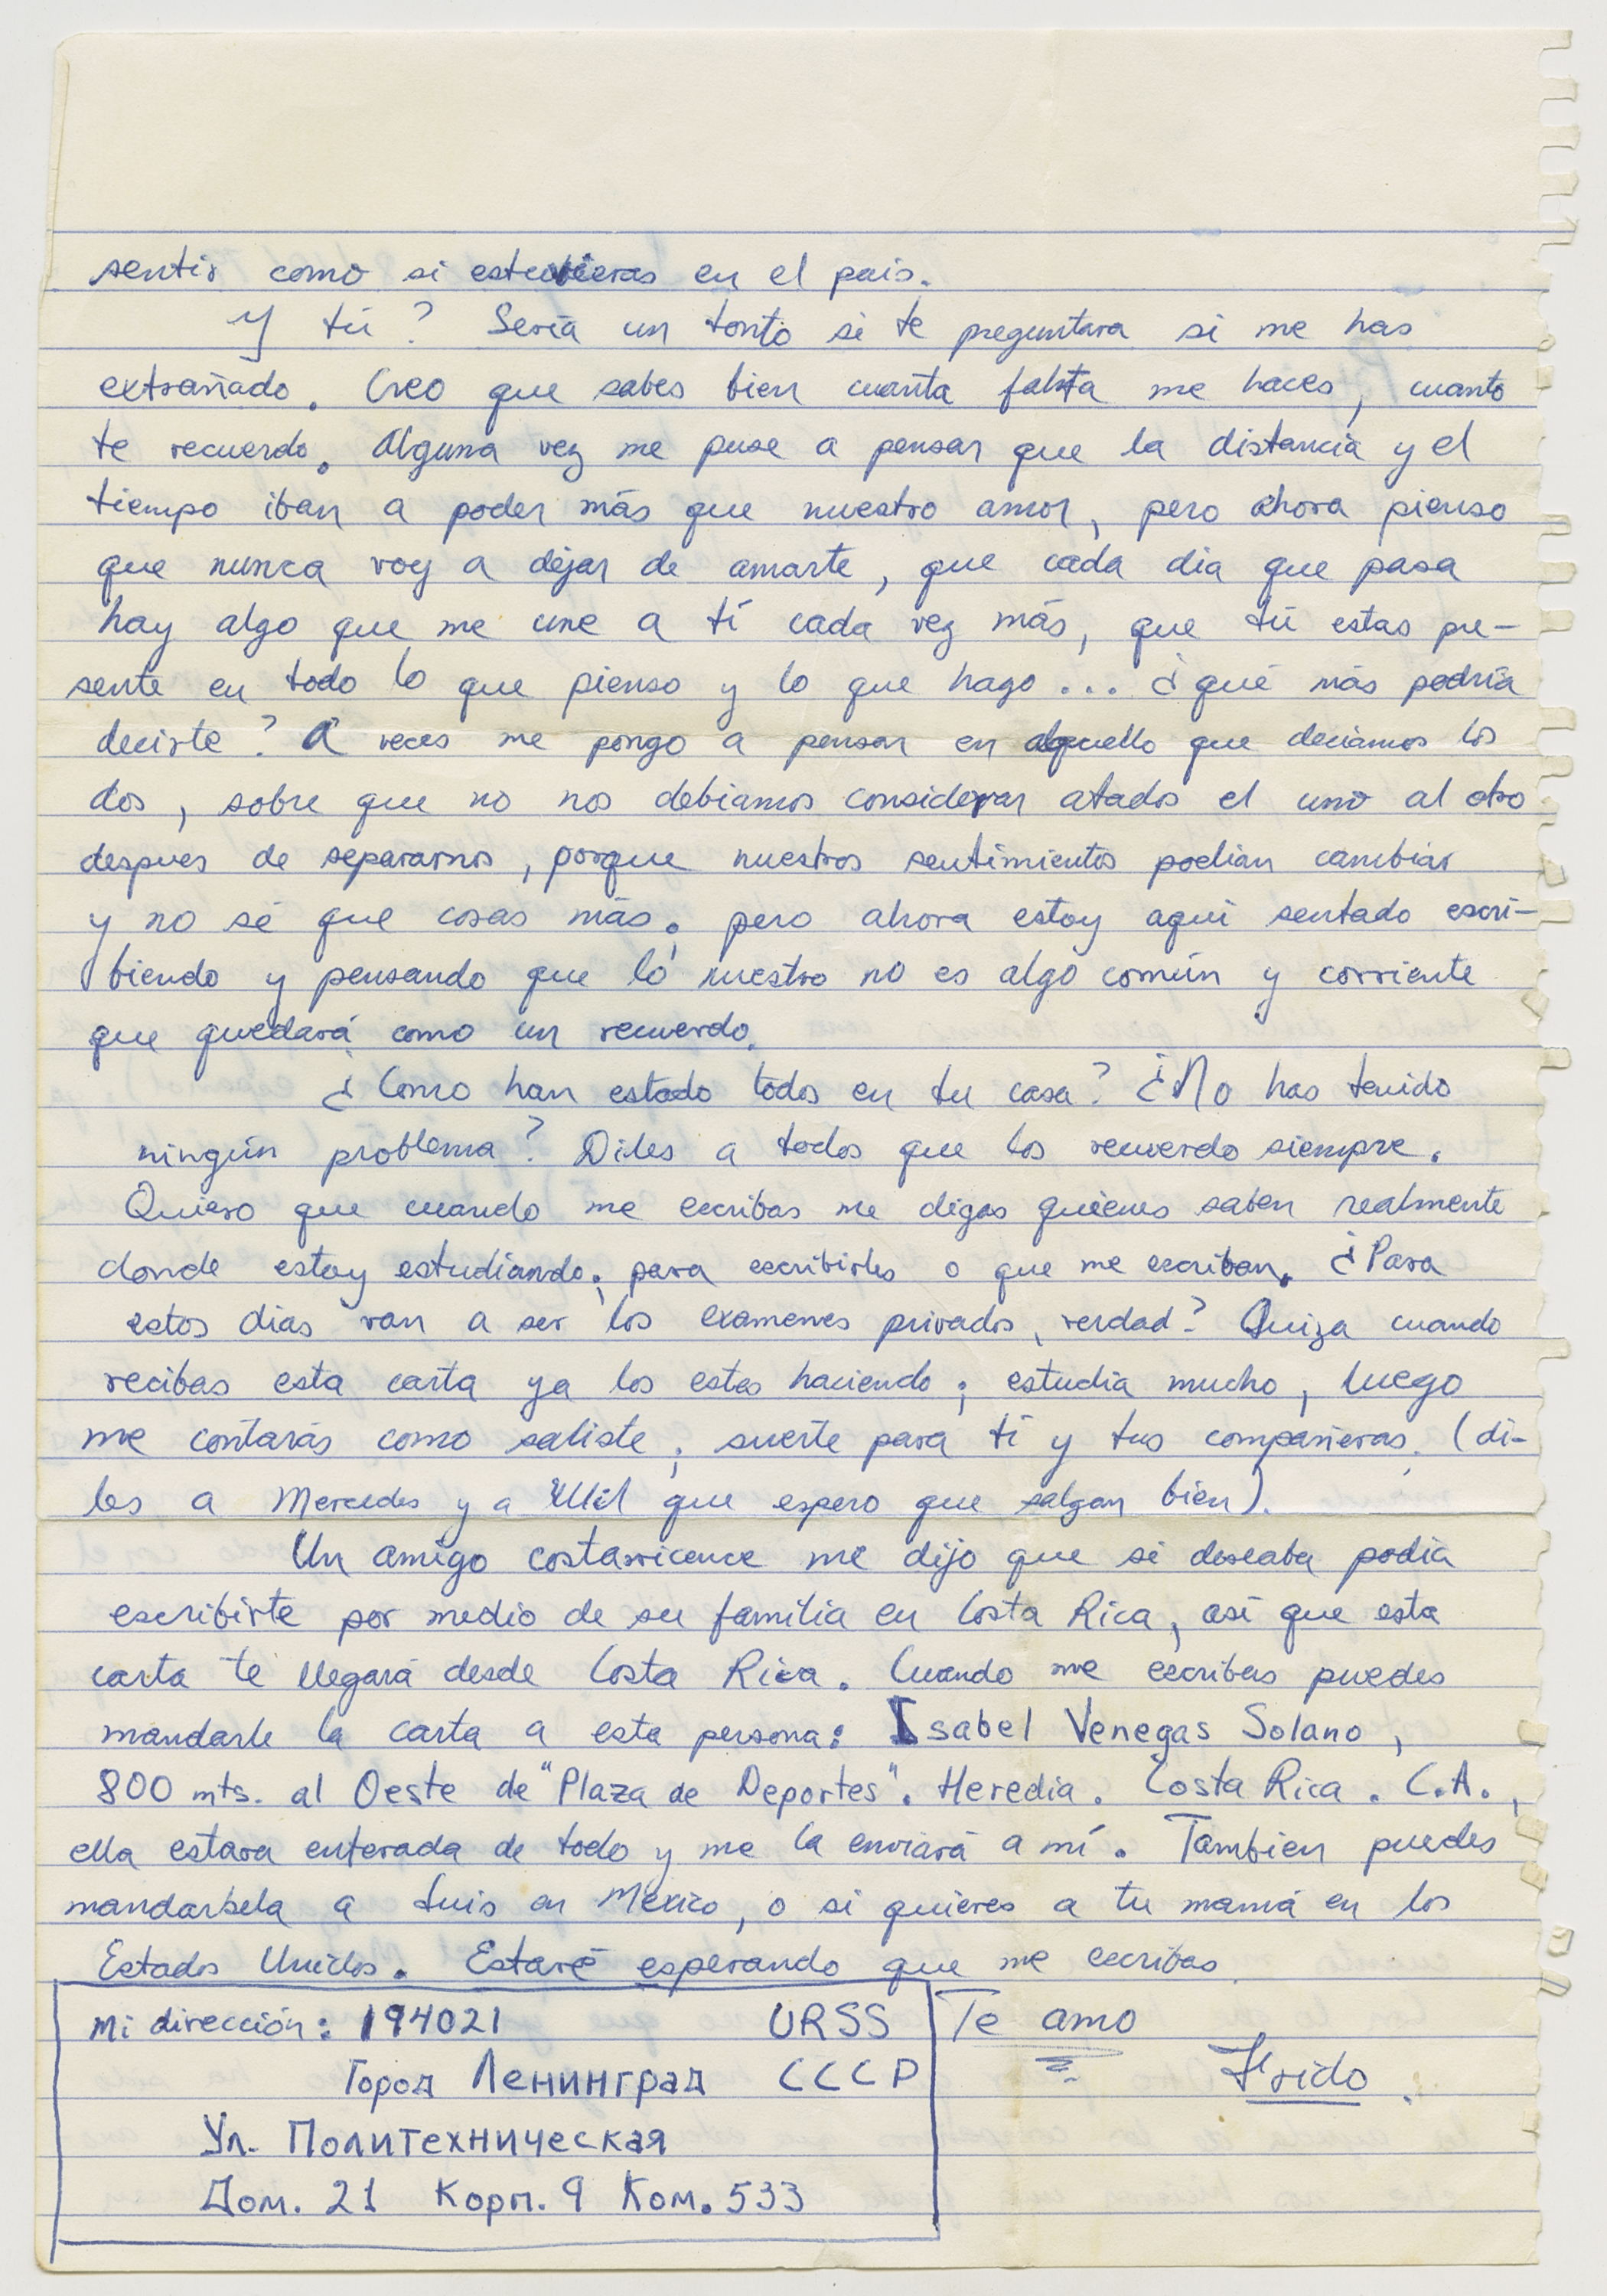 sentir como si estuvieras en el pais.
Y tú? Sería un tonto si te preguntara si me has
extrañado. Creo que sabes bien cuanta falta me haces, cuanto
te recuerdo. Alguna vez me puse a pensar que la distancia y el
tiempo iban a poder más que nuestro amor, pero ahora pienso
que nunca voy a dejar de amarte, que cada dia que pasa
hay algo que me une a tí cada vez más, que tú estas pre-
sente en todo lo que pienso y lo que hago... ¿qué más podría
decirte? A veces me pongo a pensar en aquello que deciamos los
dos, sobre que no nos debiamos considerar atados el uno al otro
despues de separarnos, porque nuestros sentimientos podian cambiar
y no sé que cosas más; pero ahora estoy aquí sentado escri-
biendo y pensando que lo nuestro no es algo común y corriente
que quedará como un recuerdo.
¿Como han estado todos en tu casa? ¿No has tenido
ningún problema? Diles a todos que los recuerdo siempre.
Quiero que cuando me escribas me digas quienes saben realmente
donde estoy estudiando; para escribirles o que me escriban. ¿Para
estos dias van a ser los examenes privados, verdad? Quiza cuando
recibas esta carta ya los estes haciendo; estudia mucho, luego
me contarás como saliste; suerte para tí y tus compañeras. (di-
les a Mercedes y a que espero que salgan bien).
Un amigo costarricence me dijo que si deseaba podia
escribirte por medio de su familia en Costa Rica, asi que esta
carta te llegará desde Costa Rica. Cuando me escribas puedes
mandarle la carta a esta persona: Isabel Venegas Solano,
800 mts. al Oeste de "Plaza de Deportes". Heredia. Costa Rica. C.A.,
ella estara enterada de todo y me la enviará a mí. Tambien puedes
mandarsela a Luis en Mexico, o si quieres a tu mamá en los
Estados Unidos. Estaré esperando que me escribas.
Mi dirección: 194021 URSS
Город Ленинград СССР
Ул. Политехническая
Дом. 21 Корп. 9 Ком. 533
Te amo